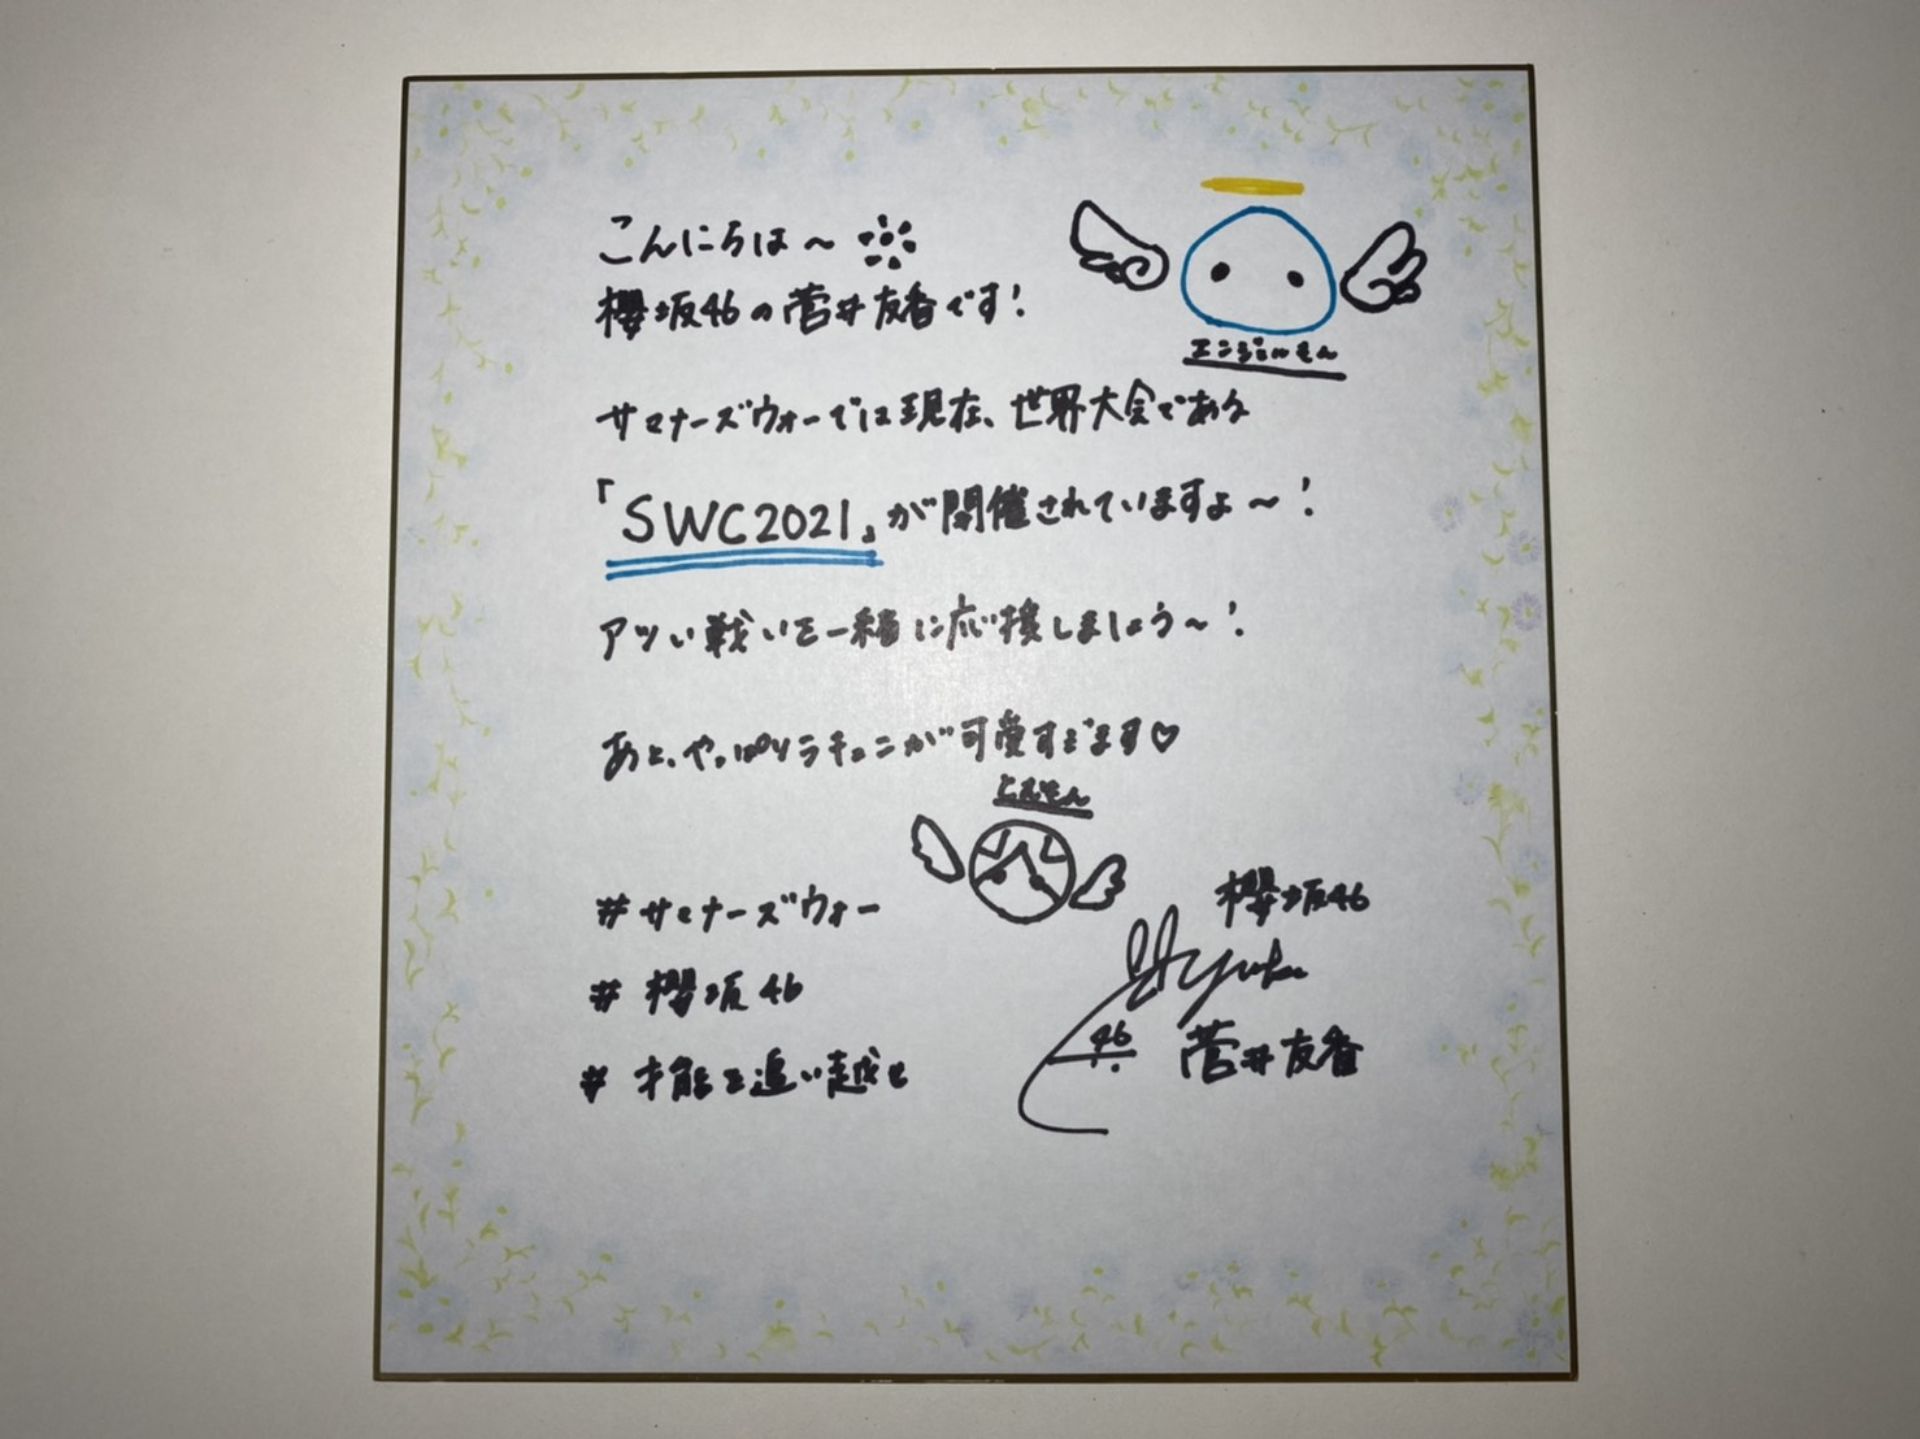 こんにちは～
櫻坂46の菅井友香です!
エンジェルもん
サマナーズウォーでは現在、世界大会である
「SWC2021」が開催されていますよ～!
アツい戦いを一緒に応援しましょう～!
あと、やっぱりラチョニが可愛すぎます♡
とんもん
#サマナーズウォー
#櫻坂46
#才能を追い越せ
櫻坂46
Yuuka
46
菅井友香